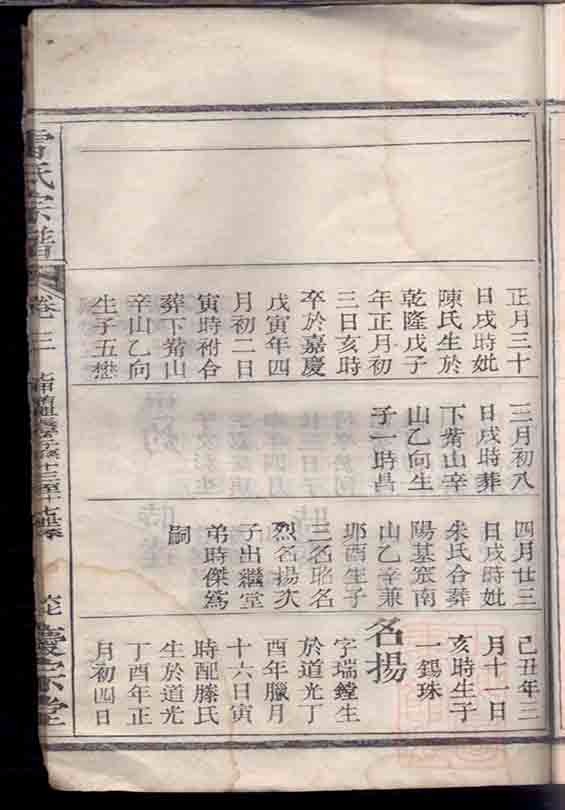 正月三十
日戌時妣
陳氏生於
乾隆戊子
年正月初
三日亥時
卒於嘉慶
戊寅年四
月初二日
寅時祔合
葬下觜山
辛山乙向
生子五懋
三月初八
日戌時葬
下觜山辛
山乙向生
子一時昌
四月廿三
日戌時妣
朱氏合葬
陽基宸南
山乙辛兼
卯酉生子
三名昭名
烈名揚次
子出繼堂
弟時傑為
嗣
己丑年三
月十一日
亥時生子
一錫珠
名揚
字瑞鏜生
於道光丁
酉年臘月
十六日寅
時配滕氏
生於道光
丁酉年正
月初四日
雷氏宗譜
卷十三
慶宗堂